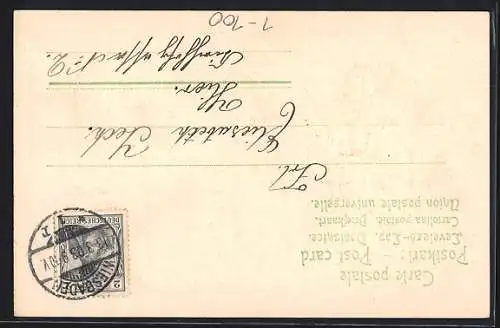 Carte postale
Postkarte: — Post card
Levelező-Lap. Dopisnice.
Cartolina postale. Briefkaart.
Union postale universelle.
Frl.
Elisabeth
Hier.
WIESBADEN
16.3.03. 9-10V.
DEUTSCHES REICH
2
1-100